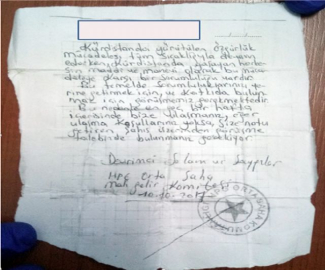 Kürdistanda yürütülen özgürlük
mücadelesi tüm sıcaklığıyla devam
ederken, Kürdistanda yaşayan herke-
sin maddi ve manevi olarak bu müca-
deleye karşı bir sorumluluğu vardır.
Bu temelde sorumluluklarınızı ye-
rine getirmek için, ve katkıda bulun-
mak için görüşmeniz gerekmektedir.
Bu nedenle en geç bir hafta
içerisinde bize ulaşmanız, eğer
ulaşma koşullarınız yoksa, size notu
getiren şahıs üzerinden görüşme
talebinde bulunmanız gerekiyor.
Devrimci Selam ve saygılar
HPG Orta Saha
Mali Komitesi
10.10.2017
ORTA SAHA